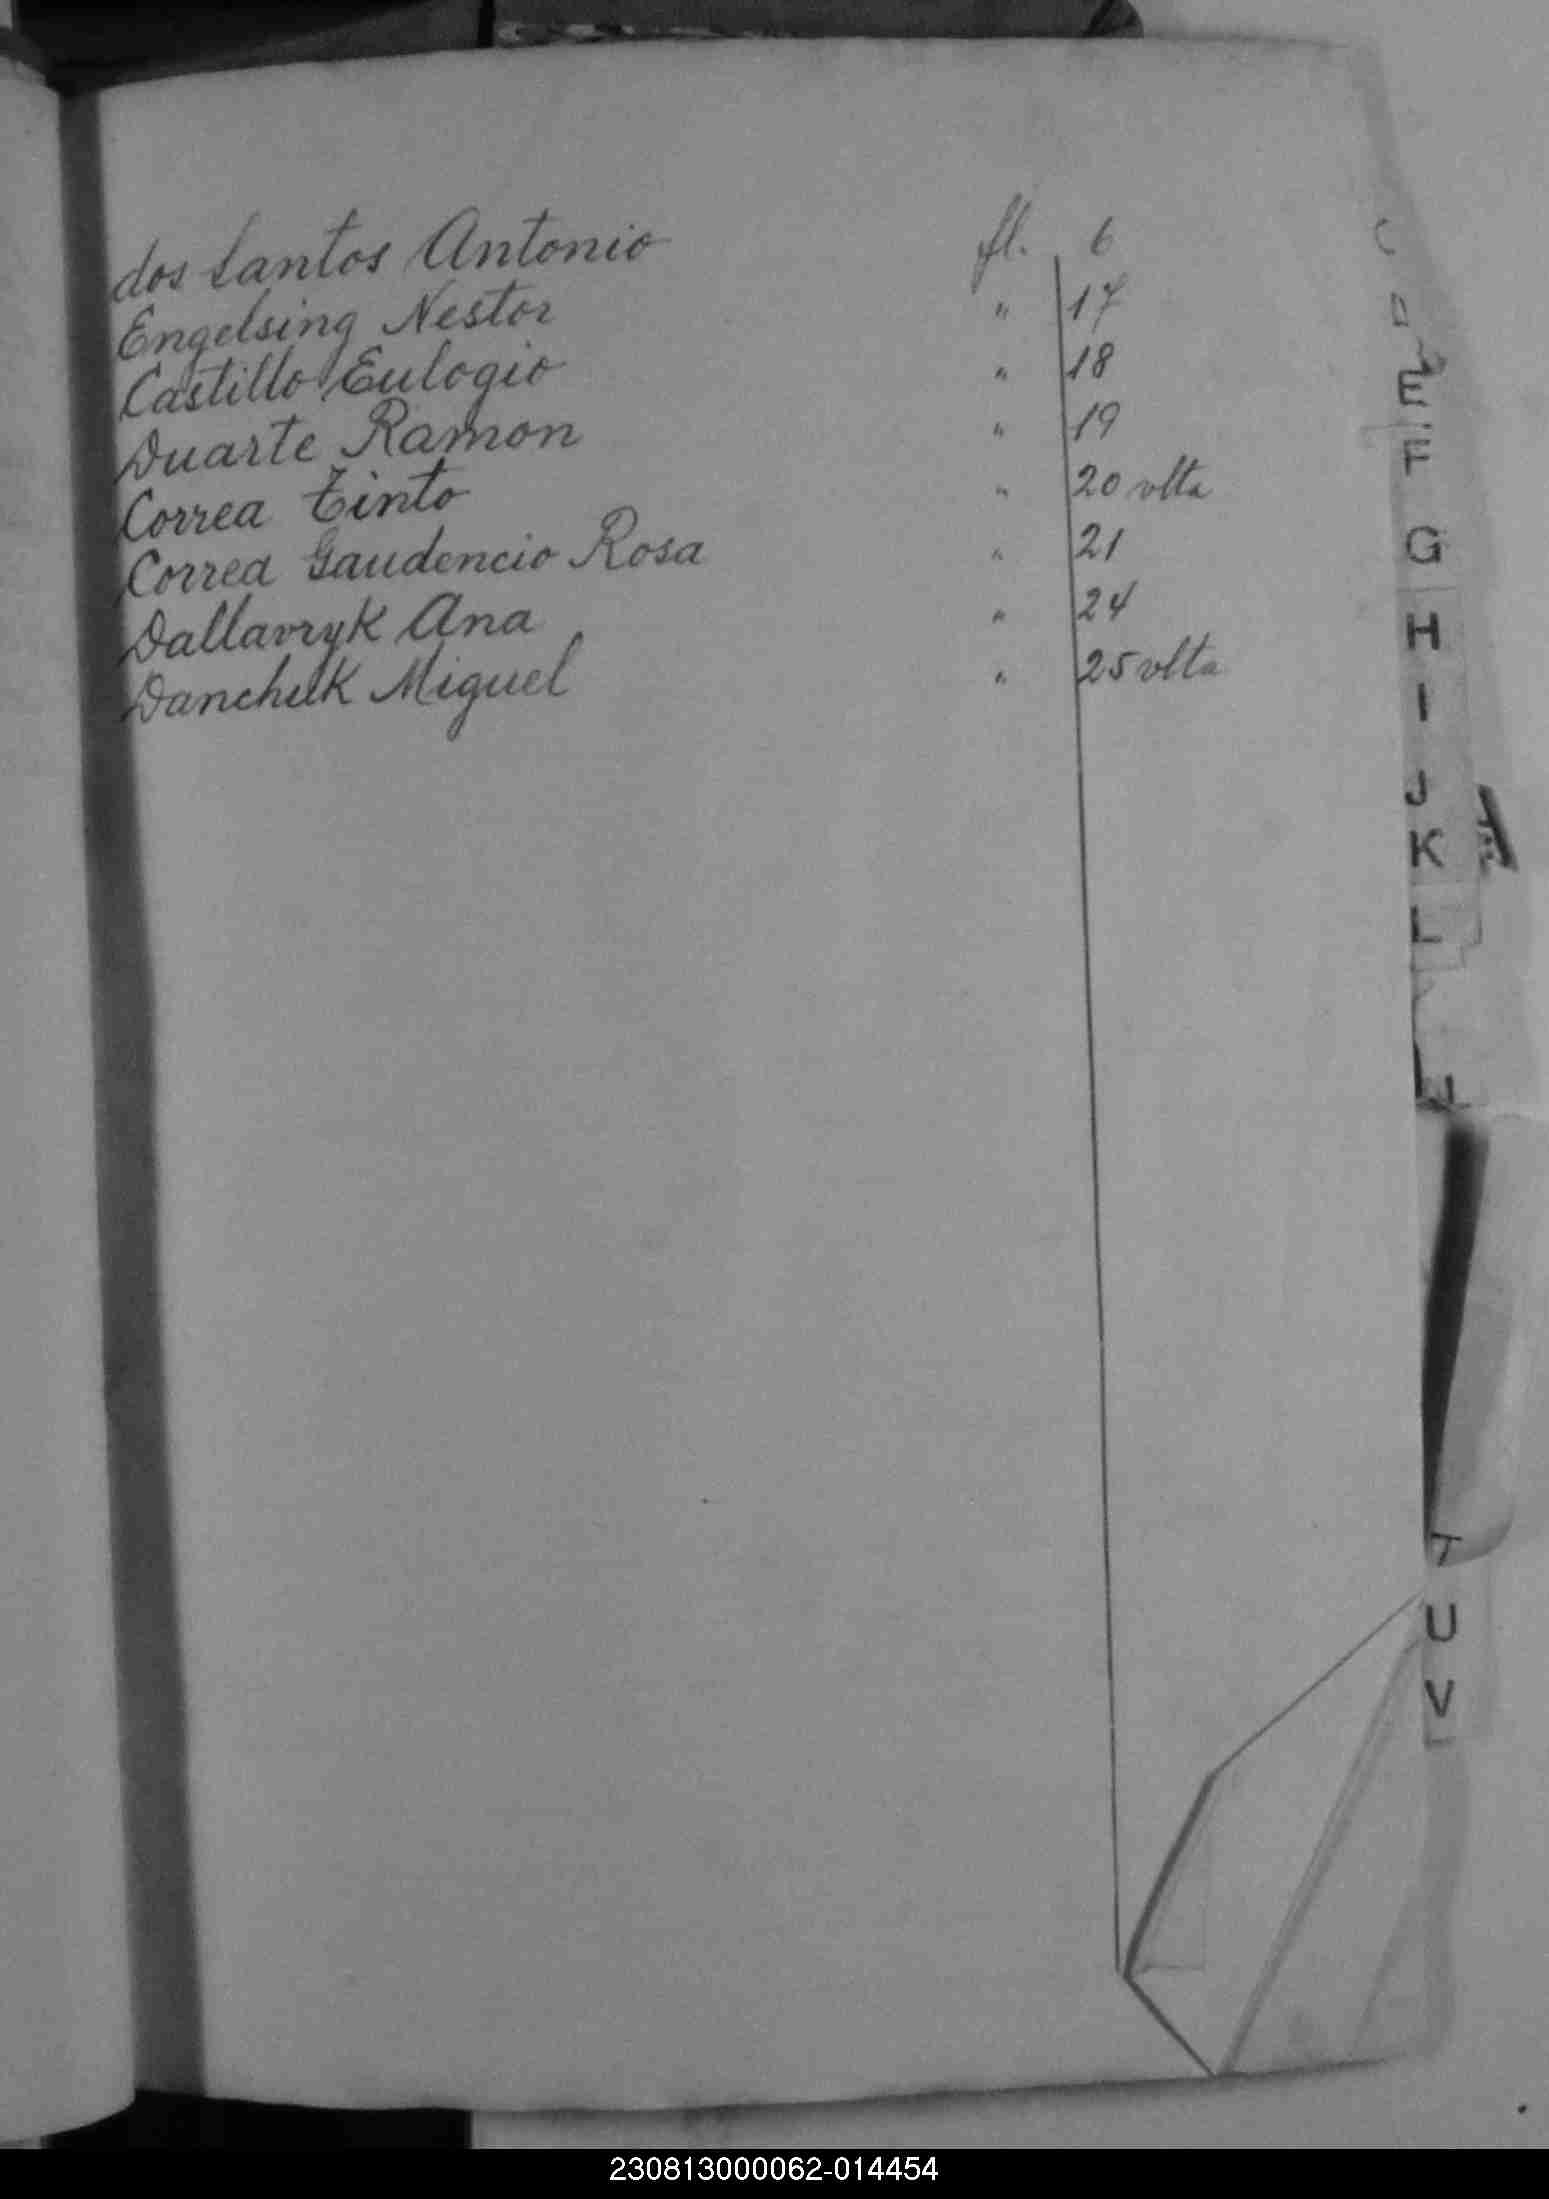 dos Santos Antonio fl. 6
Engelsing Nestor " 17
Castillo Eulogio " 18
Duarte Ramon " 19
Correa Tinto " 20 vlta
Correa Gaudencio Rosa " 21
Dallavryk Ana " 24
Danchuk Miguel " 25 vlta
C
D
E
F
G
H
I
J
K
L
T
U
V
230813000062-014454